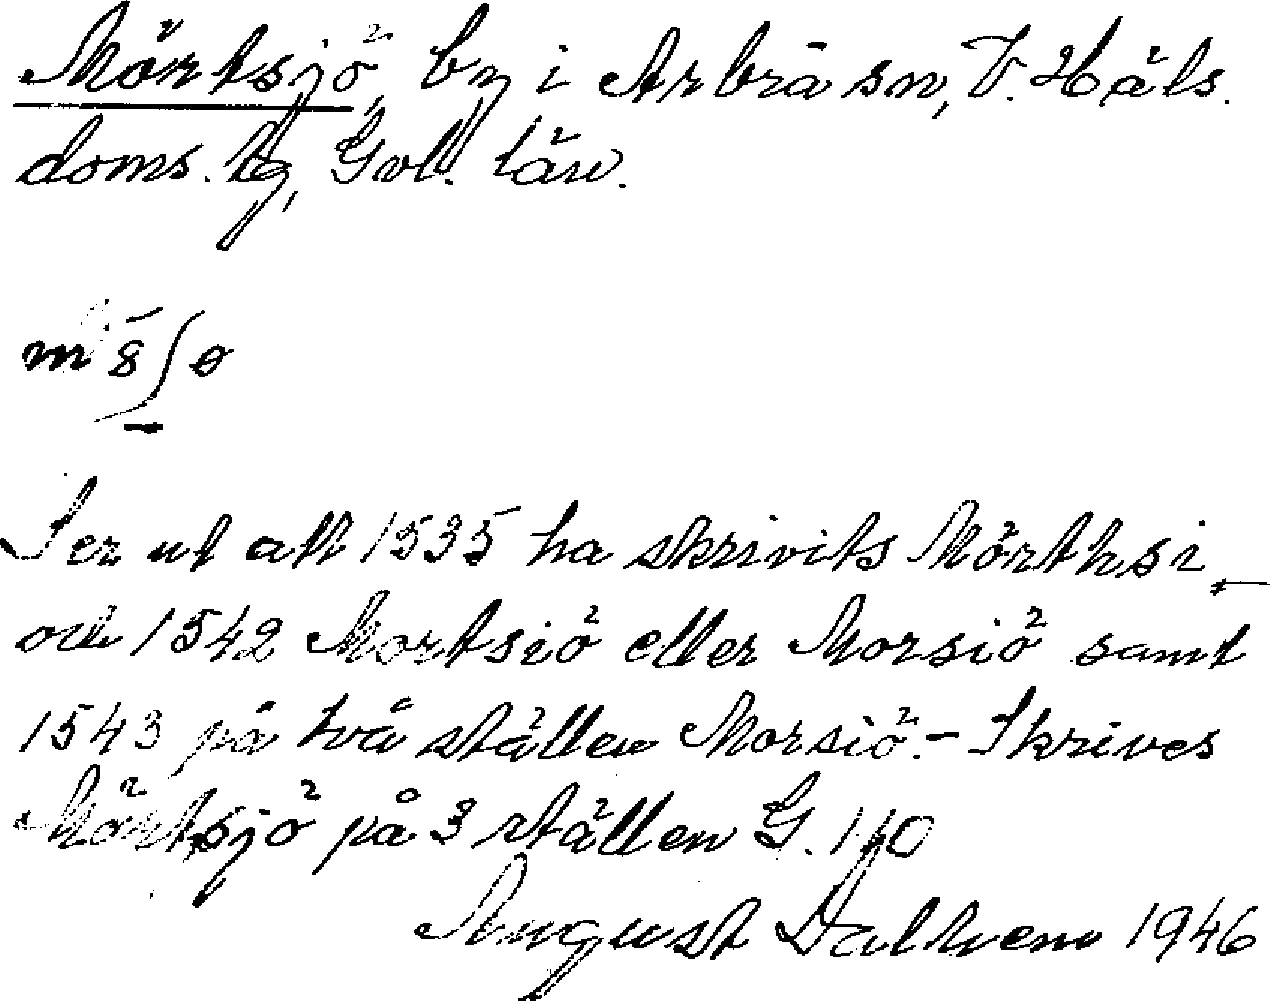 Mörtsjö, by i Arbrå sn, V. Häls.
doms. tg, Gvl. län.
Ser ut att 1535 ha skrivits Mörthsi
och 1542 Mortsiö eller Morsiö samt
1543 på två ställen Morsiö. - Skrives
Mörtsjö på 3 ställen G. 110
August Dalhem 1946